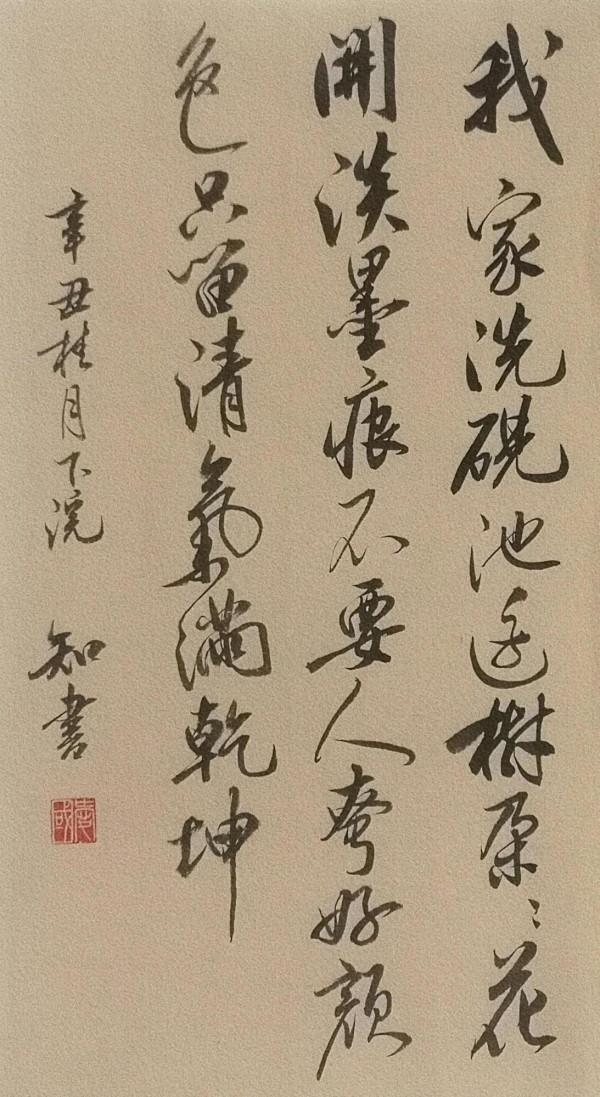 我家洗硯池邊樹朵〻花
開淡墨痕不要人夸好顏
色只留清氣滿乾坤
辛丑桂月下浣 知書